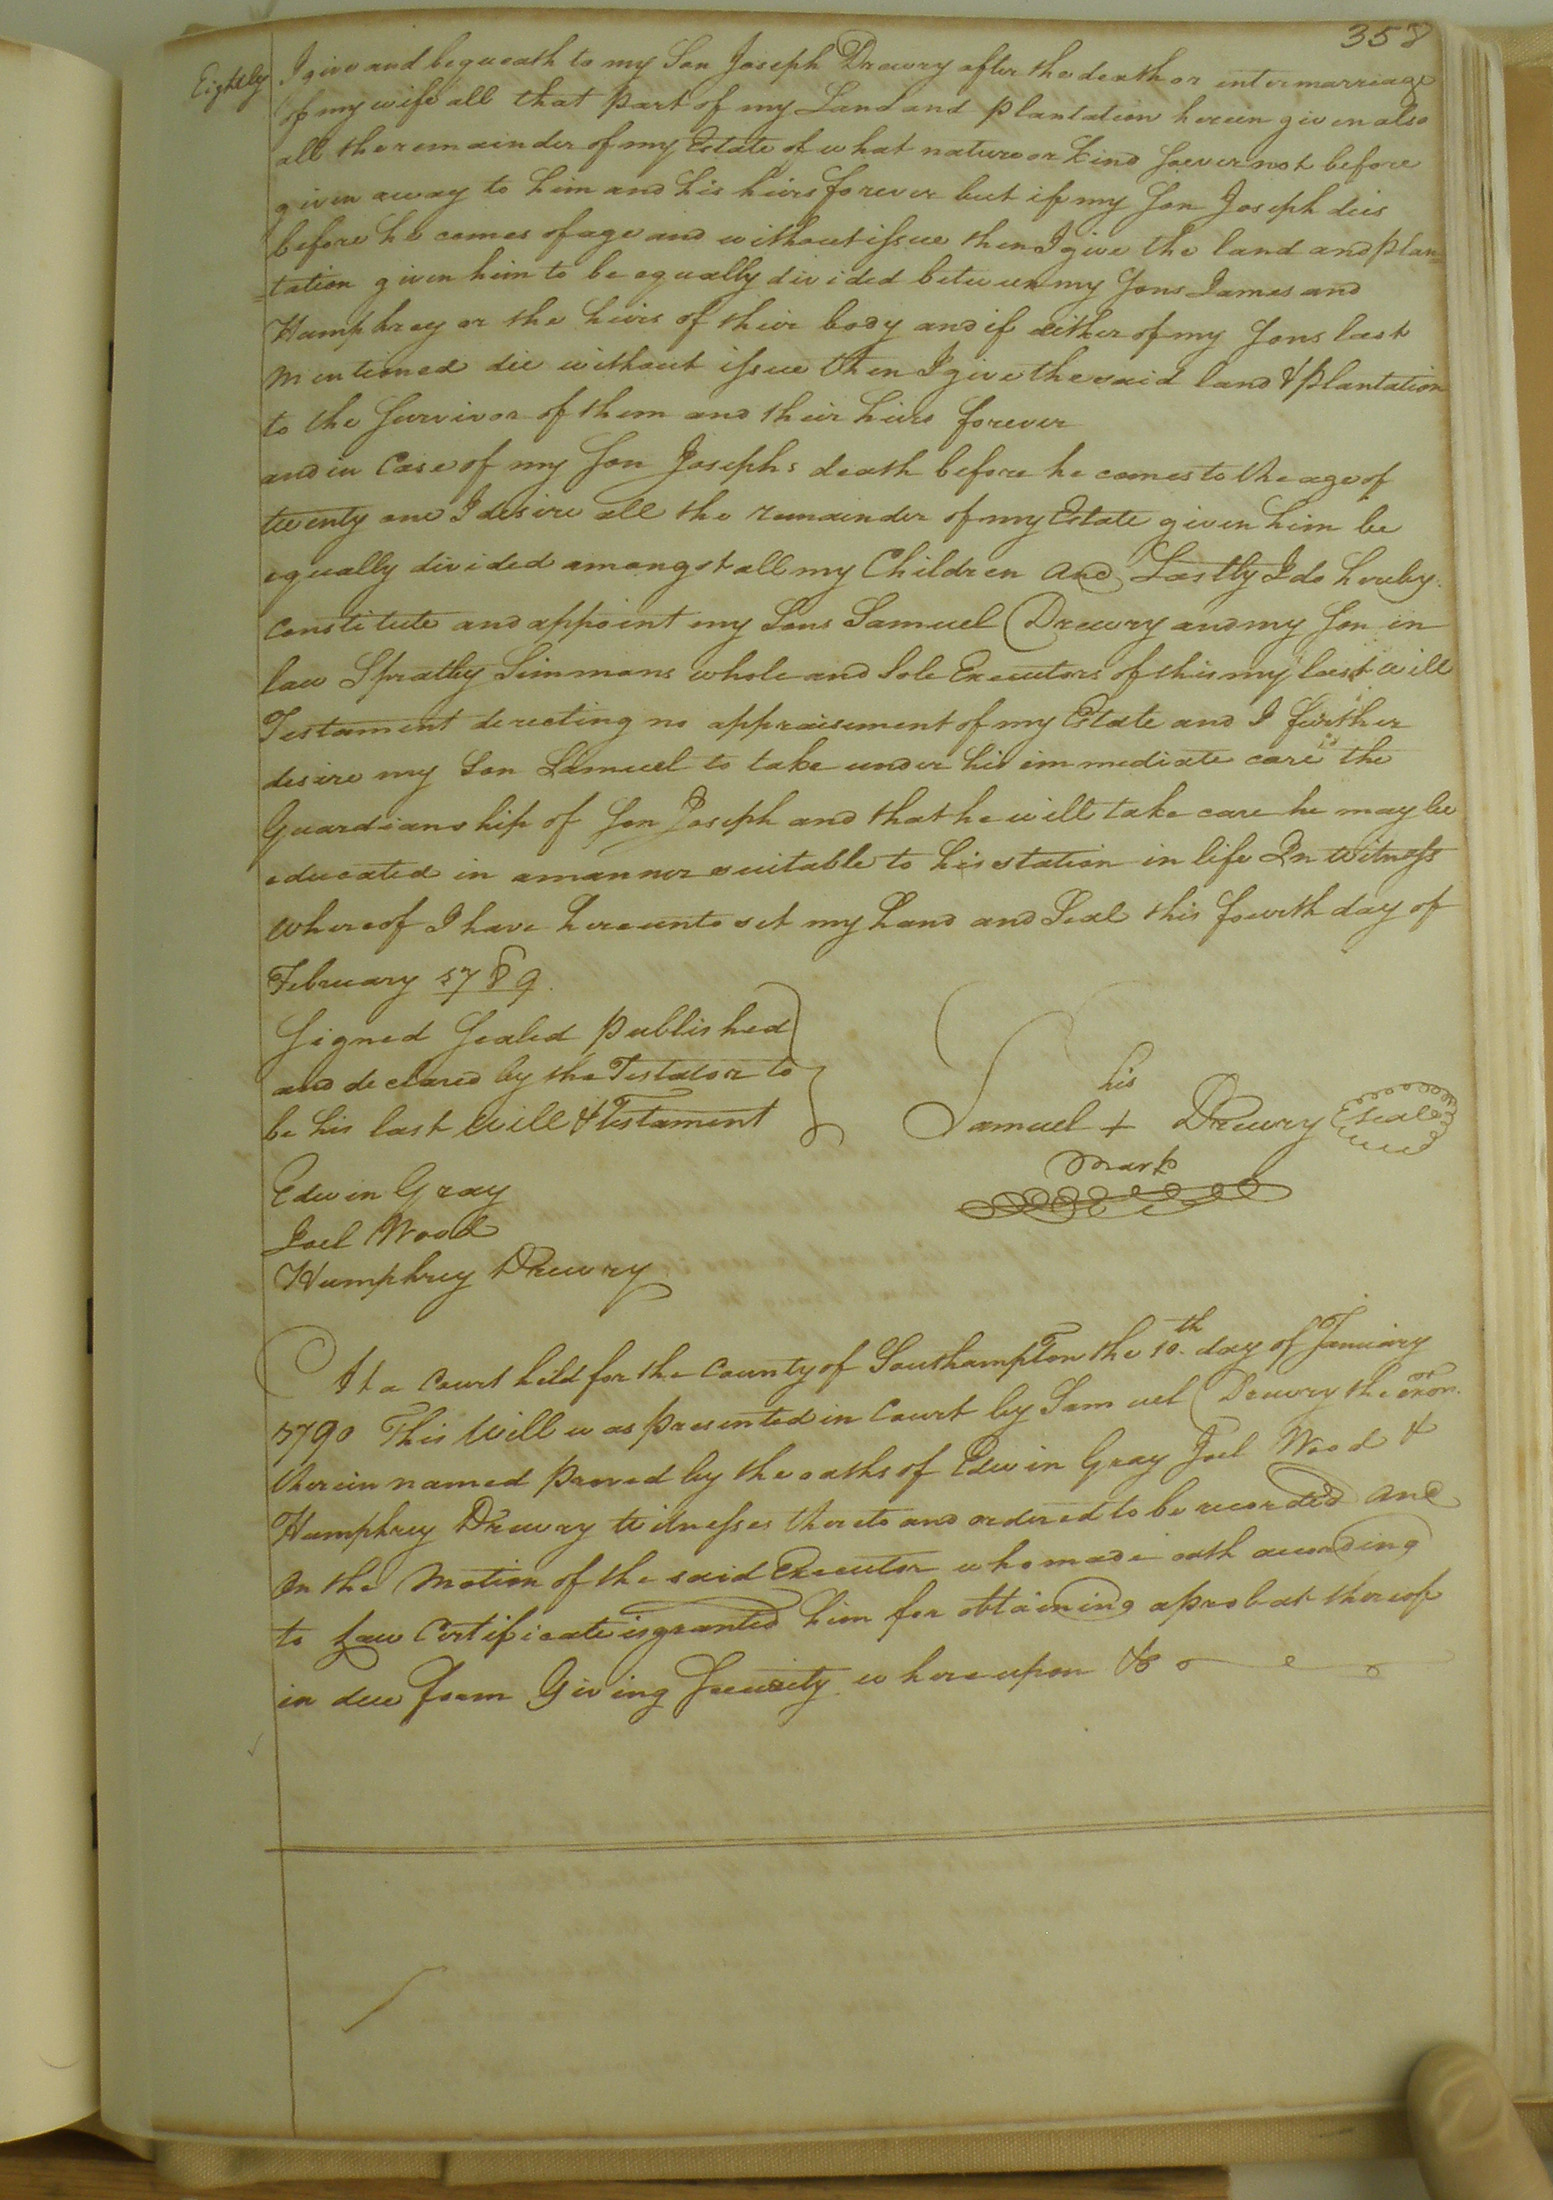 358
Eightly I give and bequeath to my Son Joseph Drewry after the death or intermarriage
of my wife all that part of my Land and plantation herein given also
all the remainder of my Estate of what nature or kind soever not before
given away to him and his heirs forever but if my Son Joseph dies
before he comes of age and without issue then I give the land and plan
=tation given him to be equally divided between my Sons James and
Humphrey or the heirs of their body and if either of my Sons last
Mentioned die without issue then I give the said land & plantation
to the Survivor of them and their heirs forever
and in Case of my Son Josephs death before he comes to the age of
twenty one I desire all the remainder of my Estate given him be
equally divided amongst all my Children and Lastly I do hereby
Constitute and appoint my Sons Samuel Drewry and my Son in
law Spratley Simmons whole and Sole Executors of this my last will
Testament directing no appraisement of my Estate and I further
desire my Son Samuel to take under his immediate care the
Guardianship of Son Joseph and that he will take care he may be
educated in a manner suitable to his station in life In Witness
whereof I have hereunto set my hand and Seal this fourth day of
February 1789.
Signed Sealed Published
and declared by the Testator to
be his last Will & Testament
his
Samuel + Drewry Seal
mark
Edwin Gray
Joel Wood
Humphrey Drewry
At a Court held for the County of Southampton the 10th day of January
1790 This Will was presented in Court by Samuel Drewry the exor.
therein named proved by the oaths of Edwin Gray Joel Wood &
Humphrey Drewry Witnesses thereto and ordered to be recorded and
On the Motion of the said Executor who made oath according
to Law Certificate is granted him for obtaining a probat thereof
in due form Giving Security whereupon &c